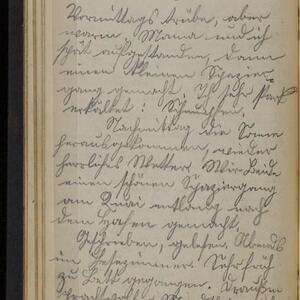 Vormittags trübe, aber
warm. Mama und ich
spät aufgestanden, dann
einen kleinen Spazier-
gang gemacht. Ich sehr stark
erkältet: Schnupfen.
Nachmittag die Sonne
herausgekommen, wieder
herrliches Wetter. Wir Beide
einen schönen Spaziergang
am Quai entlang nach
dem Hafen gemacht.
Geschrieben, gelesen. Abends
im Lesezimmer. Sehr früh
zu Bett gegangen. Draußen